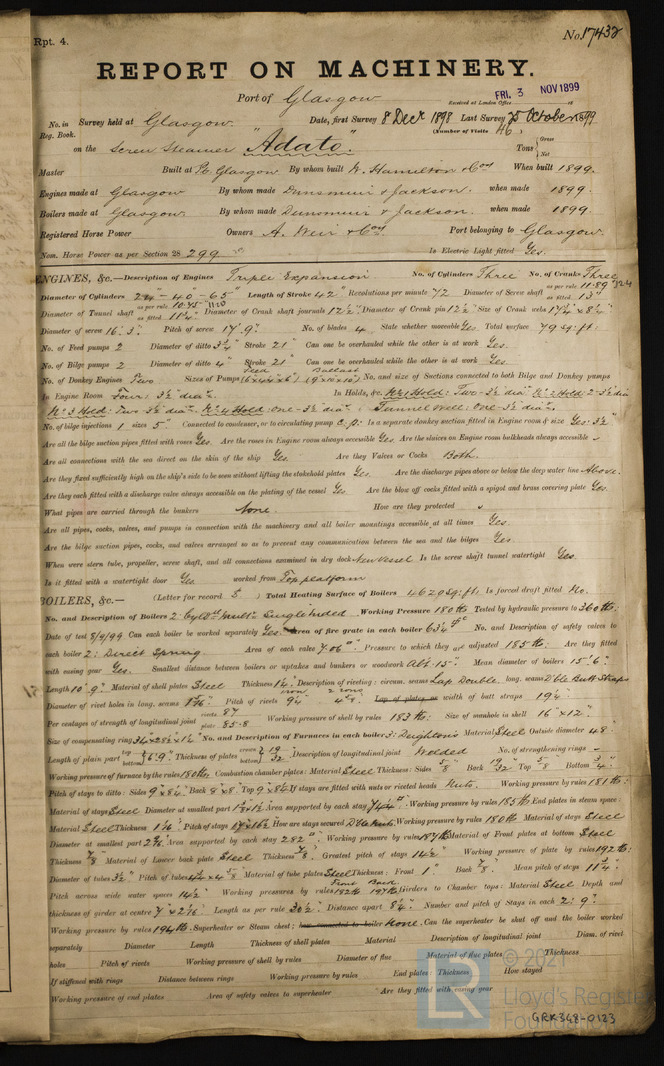 Rpt. 4.
No. 17432
REPORT ON MACHINERY.
Port of Glasgow
FRI. 3 NOV 1899
Received at London Office
No. in Reg. Book. Survey held at Glasgow. Date, first Survey 8 Decr 1898 Last Survey 25 October 1899
(Number of Visits 46)
on the Screw Steamer "Adato." Tons { Gross Net
Master Built at Pt. Glasgow By whom built W. Hamilton & Coy When built 1899.
Engines made at Glasgow By whom made Dunsmuir & Jackson. when made 1899.
Boilers made at Glasgow By whom made Dunsmuir & Jackson. when made 1899.
Registered Horse Power Owners A. Weir & Coy Port belonging to Glasgow
Nom. Horse Power as per Section 28 299 Is Electric Light fitted Yes.
ENGINES, &c.—Description of Engines Triple Expansion No. of Cylinders Three No. of Cranks Three
Diameter of Cylinders 24" - 40" - 65" Length of Stroke 42" Revolutions per minute 72 Diameter of Screw shaft as per rule 11.89 as fitted 13"
Diameter of Tunnel shaft as per rule 10.45 as fitted 11¼" Diameter of Crank shaft journals 12½" Diameter of Crank pin 12½" Size of Crank webs
Diameter of screw 16'.3" Pitch of screw 17'.9" No. of blades 4 State whether moveable Yes. Total surface 79 sq: ft:
No. of Feed pumps 2 Diameter of ditto 3¾" Stroke 21" Can one be overhauled while the other is at work Yes.
No. of Bilge pumps 2 Diameter of ditto 4" Stroke 21" Can one be overhauled while the other is at work Yes.
No. of Donkey Engines Two Sizes of Pumps Feed Ballast No. and size of Suctions connected to both Bilge and Donkey pumps
In Engine Room Four: 3½" diar. In Holds, &c. No 1 Hold: Two - 3½" diar No 2 Hold: 2 - 3½" dia
No 3 Hold: Two 3½" diar. No 4 Hold: One - 3½" diar. Tunnel Well: One - 3½" diar.
No. of bilge injections 1 sizes 5" Connected to condenser, or to circulating pump C.p: Is a separate donkey suction fitted in Engine room & size Yes: 3½"
Are all the bilge suction pipes fitted with roses Yes. Are the roses in Engine room always accessible Yes. Are the sluices on Engine room bulkheads always accessible
Are all connections with the sea direct on the skin of the ship Yes. Are they Valves or Cocks Both.
Are they fixed sufficiently high on the ship's side to be seen without lifting the stokehold plates Yes. Are the discharge pipes above or below the deep water line Above.
Are they each fitted with a discharge valve always accessible on the plating of the vessel Yes. Are the blow off cocks fitted with a spigot and brass covering plate Yes.
What pipes are carried through the bunkers None. How are they protected
Are all pipes, cocks, valves, and pumps in connection with the machinery and all boiler mountings accessible at all times Yes.
Are the bilge suction pipes, cocks, and valves arranged so as to prevent any communication between the sea and the bilges Yes.
When were stern tube, propeller, screw shaft, and all connections examined in dry dock New vessel Is the screw shaft tunnel watertight Yes.
Is it fitted with a watertight door Yes worked from Top platform
BOILERS, &c.— (Letter for record S) Total Heating Surface of Boilers 4620 sq: ft. Is forced draft fitted No.
No. and Description of Boilers 2 Single Ended Working Pressure 180 lb Tested by hydraulic pressure to 360 lb:
Date of test 8/9/99 Can each boiler be worked separately Yes. Area of fire grate in each boiler 63¼ No. and Description of safety valves to
each boiler 2: Direct Spring Area of each valve 7.06 Pressure to which they are adjusted 185 lb: Are they fitted
with easing gear Yes. Smallest distance between boilers or uptakes and bunkers or woodwork Abt. 15" Mean diameter of boilers 15'.6"
Length 10'.9" Material of shell plates Steel Thickness Description of riveting: circum. seams Lap Double long. seams Dble Butt Straps
Diameter of rivet holes in long. seams Pitch of rivets 9¼" Lap of plates or width of butt straps 19¼"
Per centages of strength of longitudinal joint rivets 87 plate 85.8 Working pressure of shell by rules 183 lb: Size of manhole in shell 16" x 12".
Size of compensating ring No. and Description of Furnaces in each boiler 3: Deighton's Material Steel Outside diameter 48"
Length of plain part top bottom 6'.9" Thickness of plates crown bottom 19/32 Description of longitudinal joint Welded No. of strengthening rings
Working pressure of furnace by the rules 180 lb: Combustion chamber plates: Material Steel Thickness: Sides 5/8 Back 19/32 Top 5/8 Bottom 3/4
Pitch of stays to ditto: Sides 9" x 8¼" Back 8" x 8" Top 9" x 8¼" If stays are fitted with nuts or riveted heads Nuts. Working pressure by rules 181 lb:
Material of stays Steel Diameter at smallest part Area supported by each stay Working pressure by rules 185 lb: End plates in steam space:
Material Steel Thickness Pitch of stays How are stays secured Dble Nuts. Working pressure by rules 180 lb Material of stays Steel
Diameter at smallest part Area supported by each stay 282 Working pressure by rules 187 lb Material of Front plates at bottom Steel
Thickness 7/8 Material of Lower back plate Steel Thickness 7/8 Greatest pitch of stays 14½" Working pressure of plate by rules 192 lb:
Diameter of tubes 3½" Pitch of tubes Material of tube plates Steel Thickness: Front 1" Back 7/8 Mean pitch of stays 11¾"
Pitch across wide water spaces 14½" Working pressures by rules Front Back 192 lb 197 lb Girders to Chamber tops: Material Steel Depth and
thickness of girder at centre Length as per rule Distance apart 8¼" Number and pitch of Stays in each 2: 9"
Working pressure by rules 194 lb: Superheater or Steam chest; how connected to boiler None. Can the superheater be shut off and the boiler worked
separately Diameter Length Thickness of shell plates Material Description of longitudinal joint Diam. of rivet
holes Pitch of rivets Working pressure of shell by rules Diameter of flue Material of flue plates Thickness
If stiffened with rings Distance between rings Working pressure by rules End plates: Thickness How stayed
Working pressure of end plates Area of safety valves to superheater Are they fitted with easing gear
© 2021
Lloyd's Register
Foundation
GRK348-0123